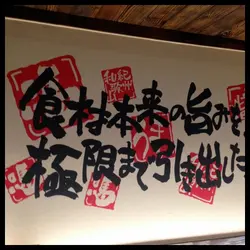 食材本来の旨みを
極限まで引き出した